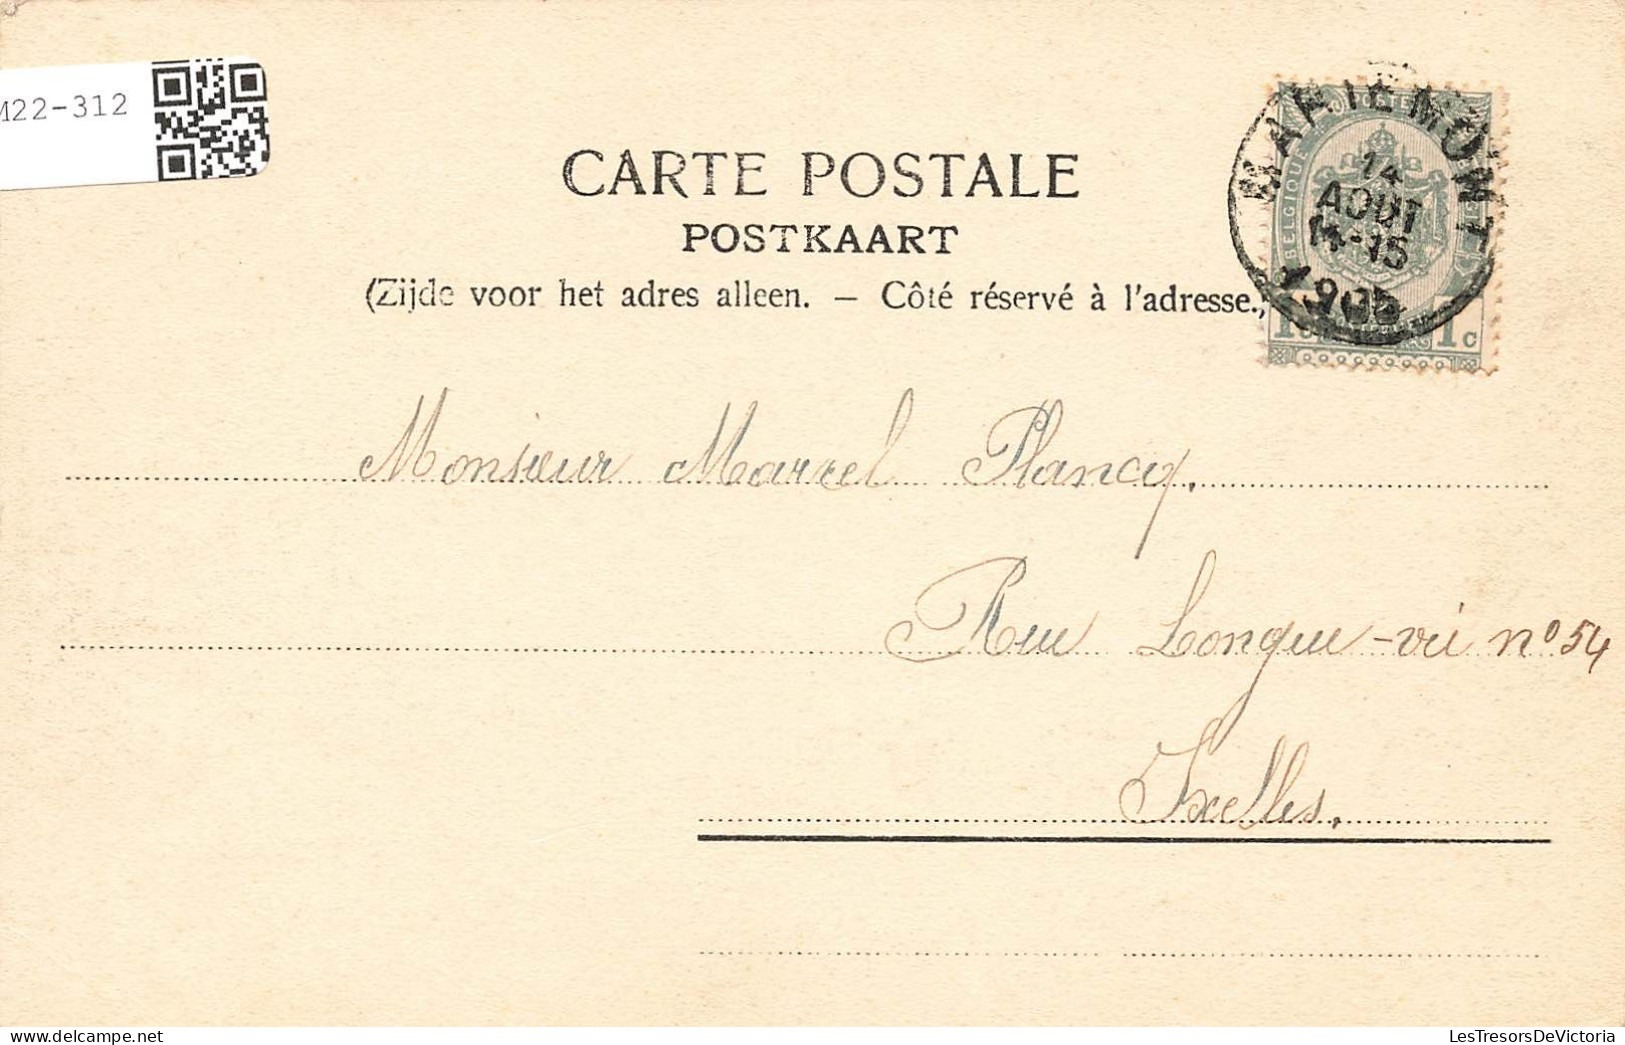 M22-312
CARTE POSTALE
POSTKAART
(Zijde voor het adres alleen. — Côté réservé à l'adresse.)
MARIEMONT
14
AOUT
15
1905
POSTES
BELGIQUE
1c
Monsieur Marcel Plancq.
Rue Longue-vie nº 54
Ixelles.
delcampe.net
LesTresorsDeVictoria